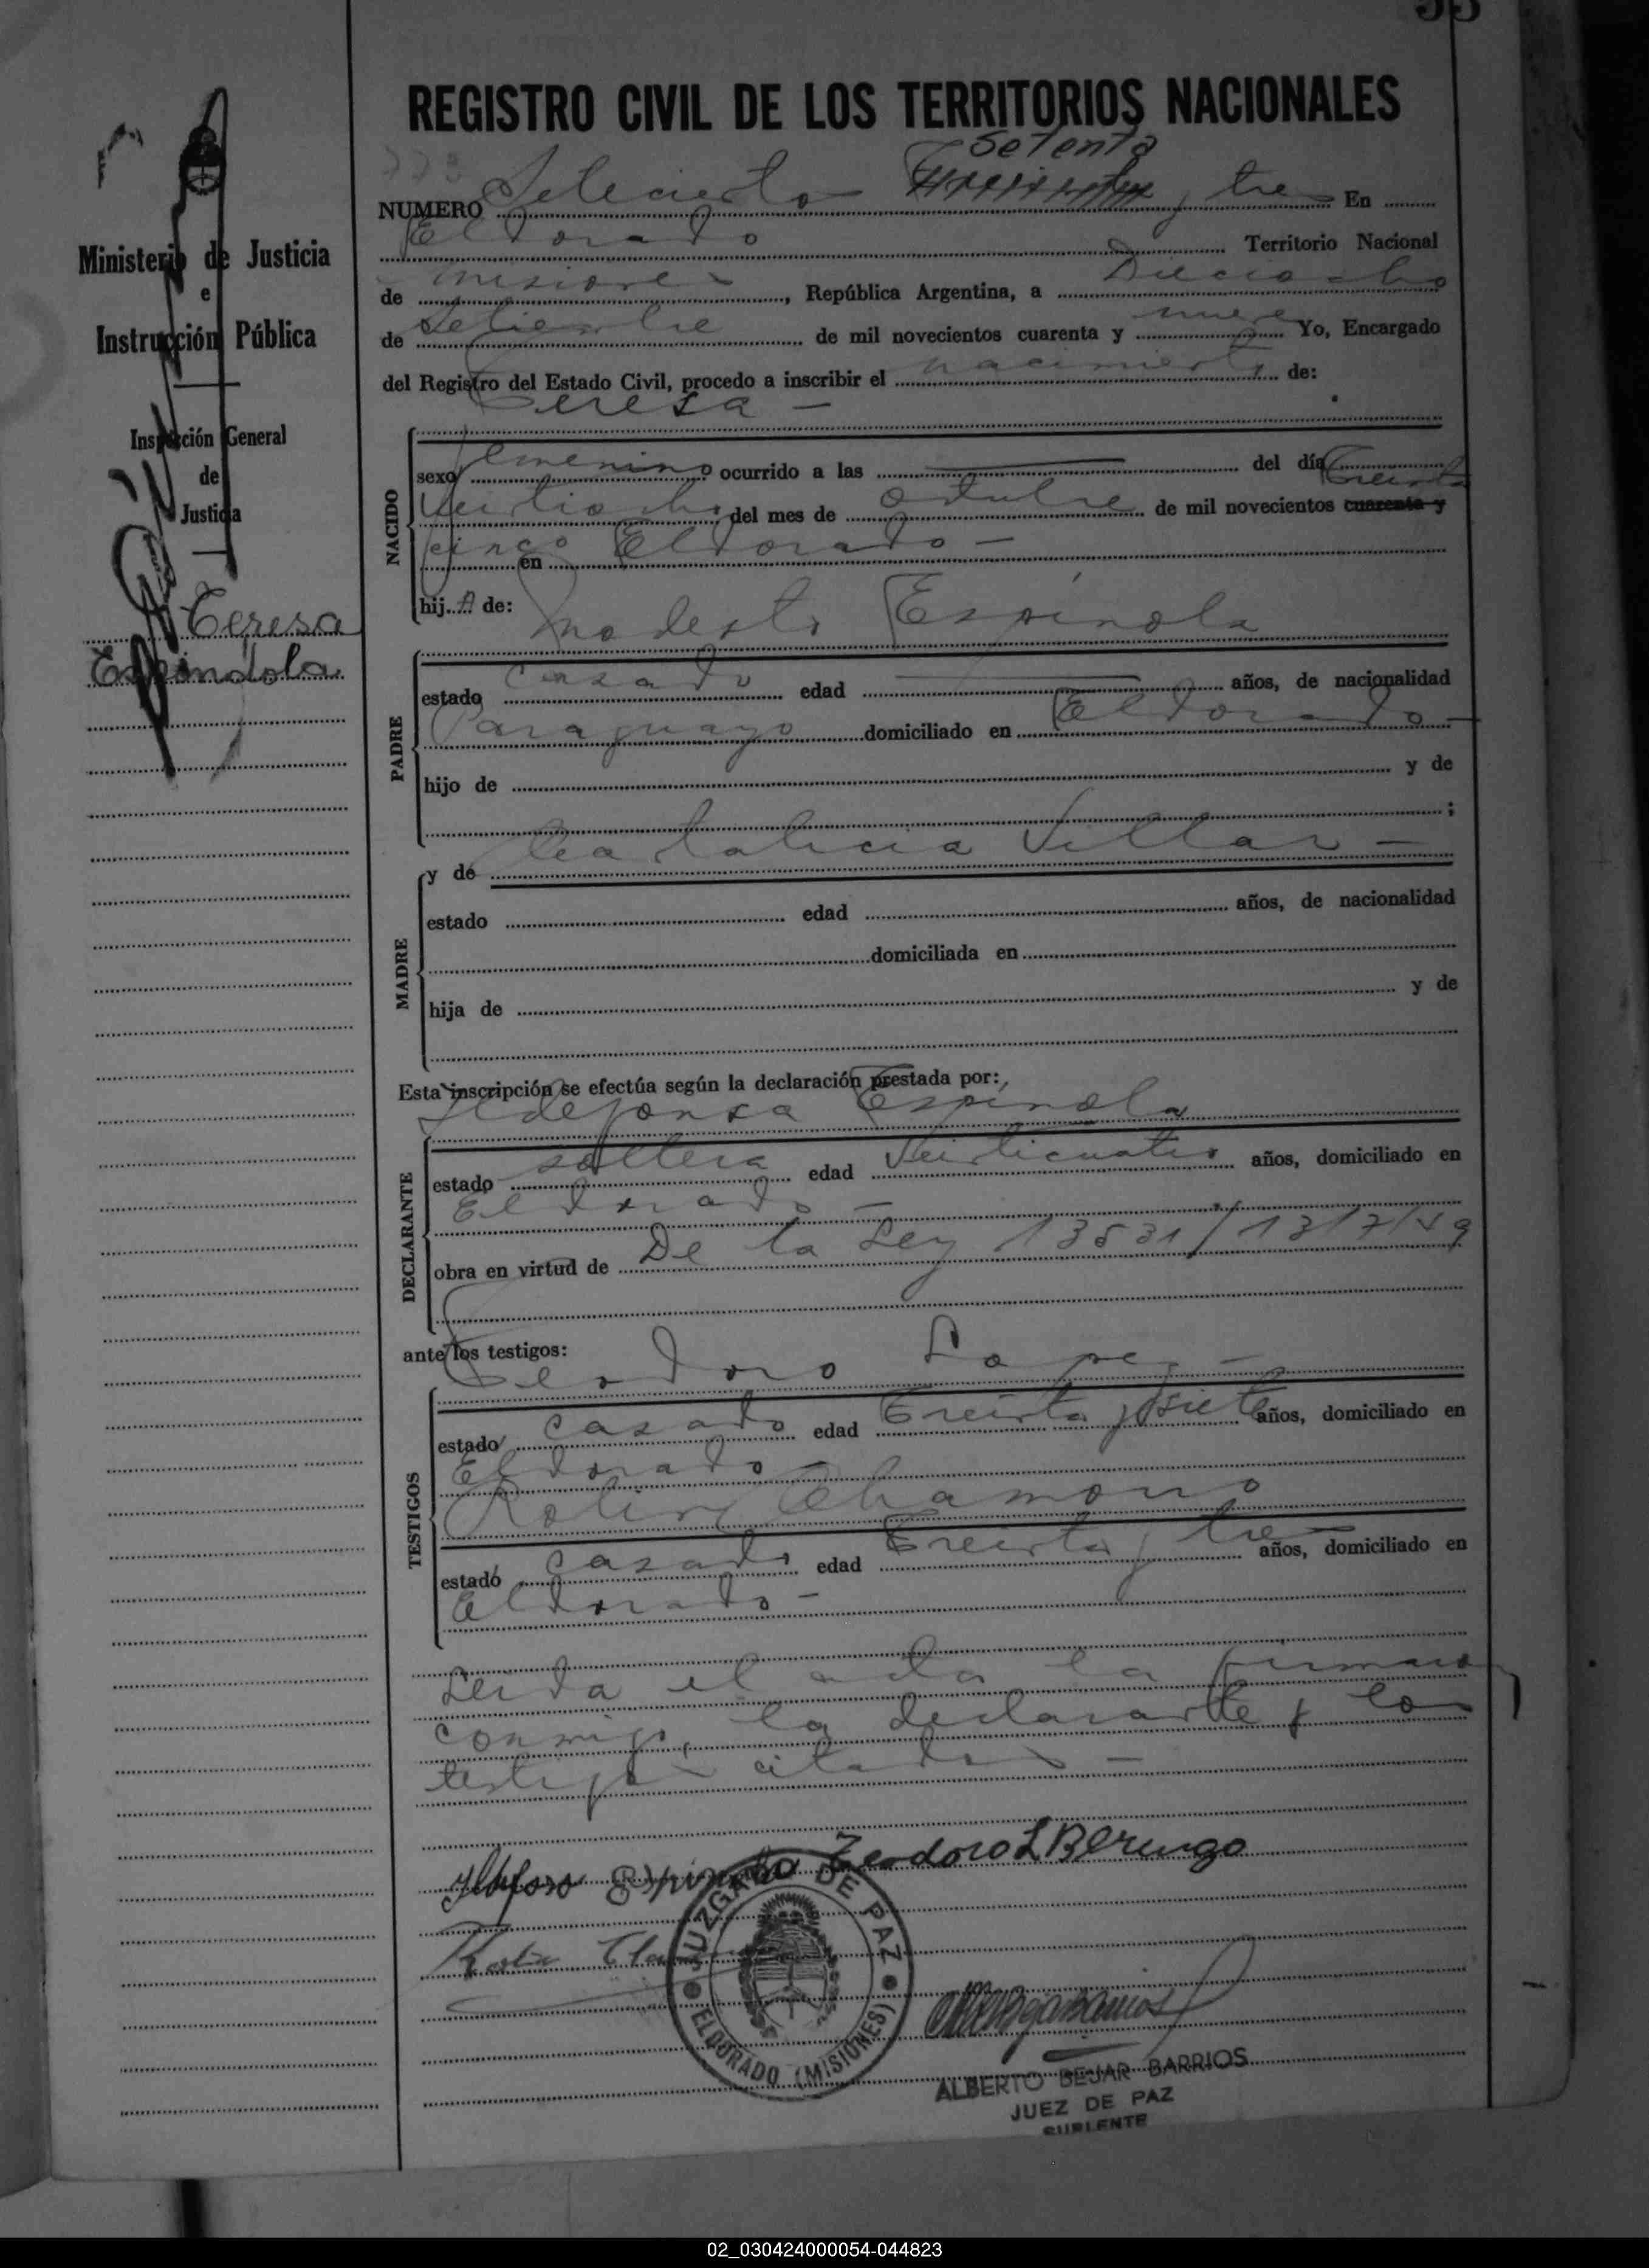 55
REGISTRO CIVIL DE LOS TERRITORIOS NACIONALES
Setenta
773
NUMERO Setecientos y tres En
Eldorado Territorio Nacional
de Misiones, República Argentina, a Dieciocho
de Setiembre de mil novecientos cuarenta y nueve Yo, Encargado
del Registro del Estado Civil, procedo a inscribir el nacimiento de:
Teresa —
Ministerio de Justicia
e
Instrucción Pública
Inspección General
de
Justicia
Teresa
Espíndola
NACIDO
sexo femenino ocurrido a las — del día
Veintiocho del mes de octubre de mil novecientos cuarenta y Treinta
cinco en Eldorado —
hij.a de: Modesto Espínola
PADRE
estado casado edad — años, de nacionalidad
Paraguayo domiciliado en Eldorado —
hijo de y de
;
MADRE
y de Catalicia Villar —
estado edad años, de nacionalidad
domiciliada en
hija de y de
Esta inscripción se efectúa según la declaración prestada por:
Ildefonsa Espinola
DECLARANTE
estado soltera edad Veinticuatro años, domiciliado en
Eldorado —
obra en virtud de De la Ley 13531/13/7/49
ante los testigos: Teodoro Lopez —
TESTIGOS
estado casado edad Treinta y siete años, domiciliado en
Eldorado —
Chamorro
estado casado edad Treinta y tres años, domiciliado en
Eldorado —
Leida el acta la firmaron
conmigo, la declarante y los
testigos citados —
Ildefonso Espinola Teodoro L
JUZGADO DE PAZ
ELDORADO (MISIONES)
ALBERTO BEJAR BARRIOS
JUEZ DE PAZ
SUPLENTE
02_030424000054-044823